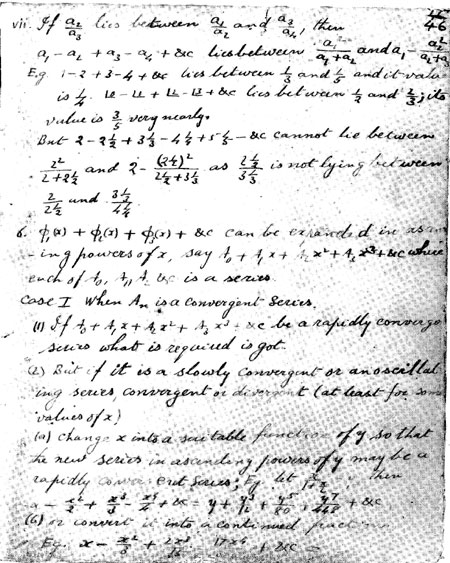 45
46
vii. If a₂/a₃ lies between a₁/a₂ and a₃/a₄, then
a₁ - a₂ + a₃ - a₄ + &c lies between a₁²/(a₁+a₂) and a₁ - a₂²/(a₂+a₃)
E.g. 1-2+3-4+&c lies between 1/3 and 1/5 and its value
is 1/4. &c lies between 1/2 and 2/3; its
value is 3/5 very nearly.
But 2 - 2½ + 3⅓ - 4¼ + 5⅕ - &c cannot lie between
2²/(2+2½) and 2 - (2½)²/(2½+3⅓) as 2½/3⅓ is not lying between
2/2½ and 3⅓/4¼.
6. φ₁(x) + φ₂(x) + φ₃(x) + &c can be expanded in
ing powers of x, say A₀ + A₁x + A₂x² + A₃x³ + &c where
each of A₀, A₁, A₂ &c is a series.
Case I When Aₙ is a convergent series.
(1) If A₀ + A₁x + A₂x² + A₃x³ + &c be a rapidly converge
series what is required is got.
(2) But if it is a slowly convergent or an oscillat
ing series, convergent or divergent (at least for some
values of x)
(a) Change x into a suitable function of y so that
the new series in ascending powers of y may be a
rapidly convergent series; E.g. let then
x - x²/2 + x³/3 - x⁴/4 + &c = y + y³/12 + y⁵/80 + y⁷/448 + &c
(b) or convert it into a continued fraction
E.g. x - x²/3 + 2x³/15 - 17x⁴ + &c =